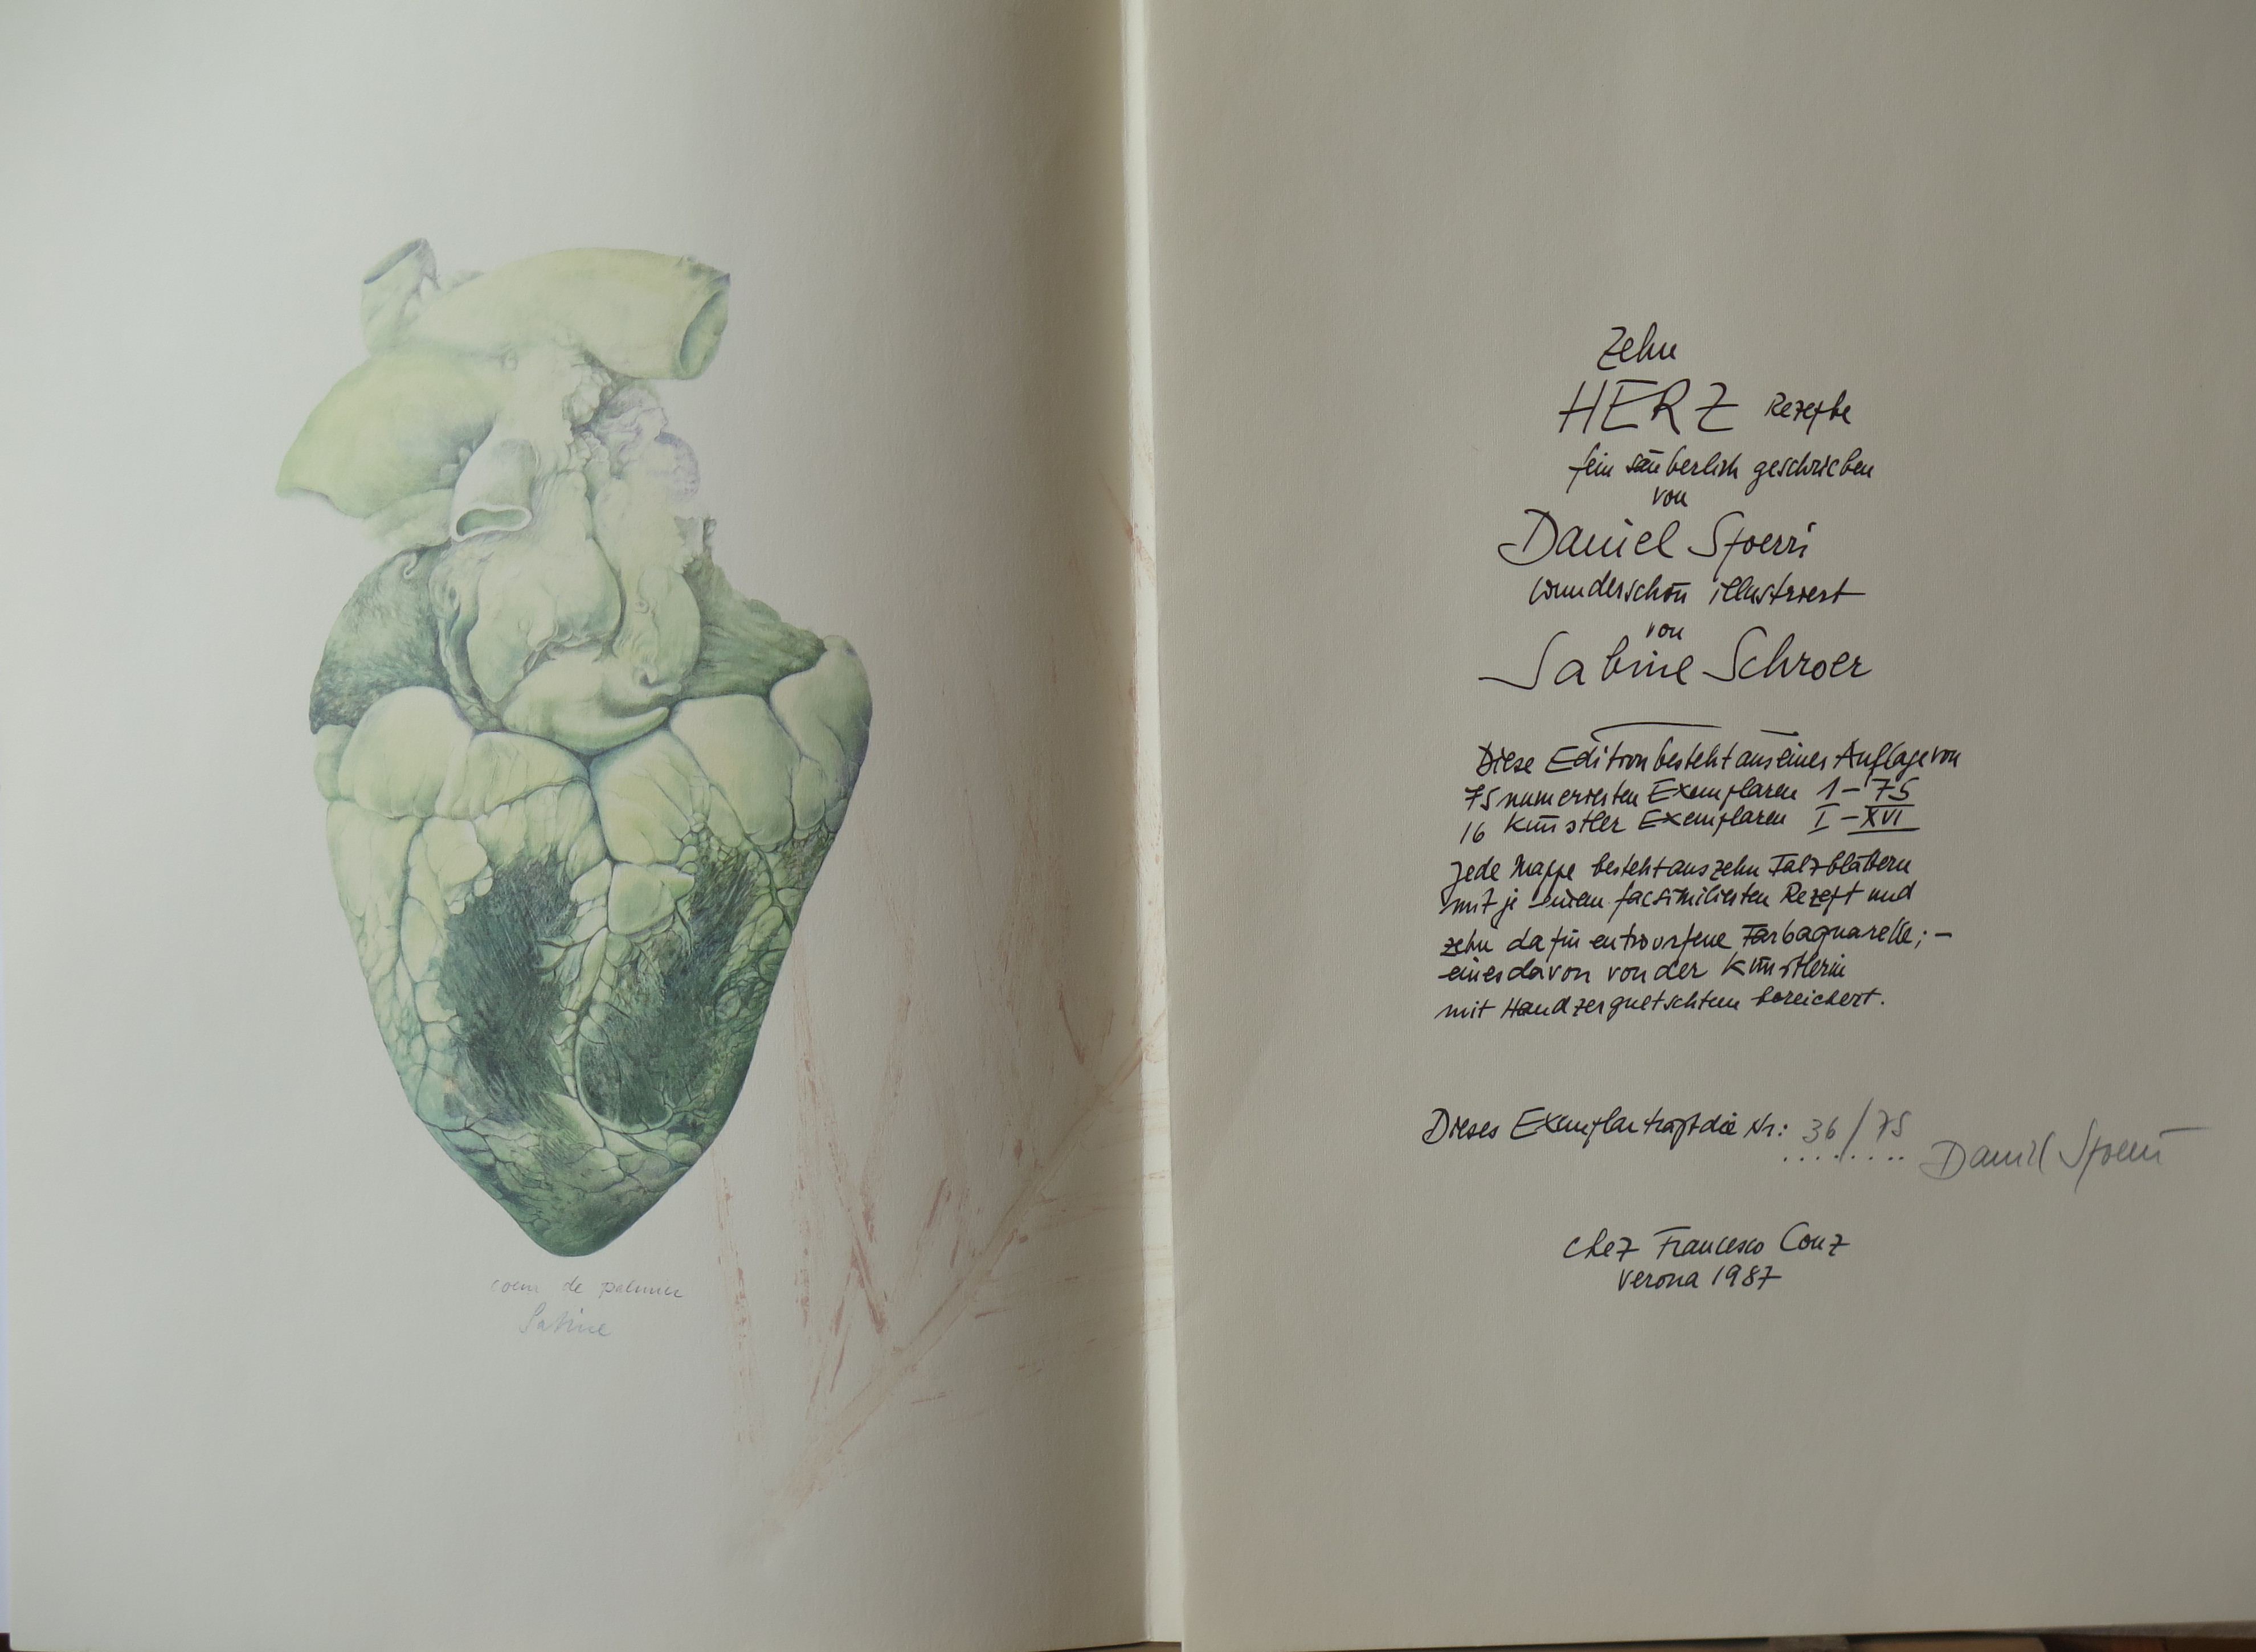 coeur de palmier
Sabine
Zehn
HERZ Rezepte
fein säuberlich geschrieben
von
Daniel Spoerri
wunderschön illustriert
von
Sabine Schroer
Diese Edition besteht aus einer Auflage von
75 numerierten Exemplaren 1-75
16 Künstler Exemplaren I-XVI
Jede Mappe besteht aus zehn Falzblättern
mit je einem facsimilierten Rezept und
zehn dafür entworfene Farbaquarelle; -
eines davon von der Künstlerin
mit Handzerquetschtem bereichert.
Dieses Exemplar trägt die Nr: 36/75
Daniel Spoerri
chez Francesco Conz
Verona 1987